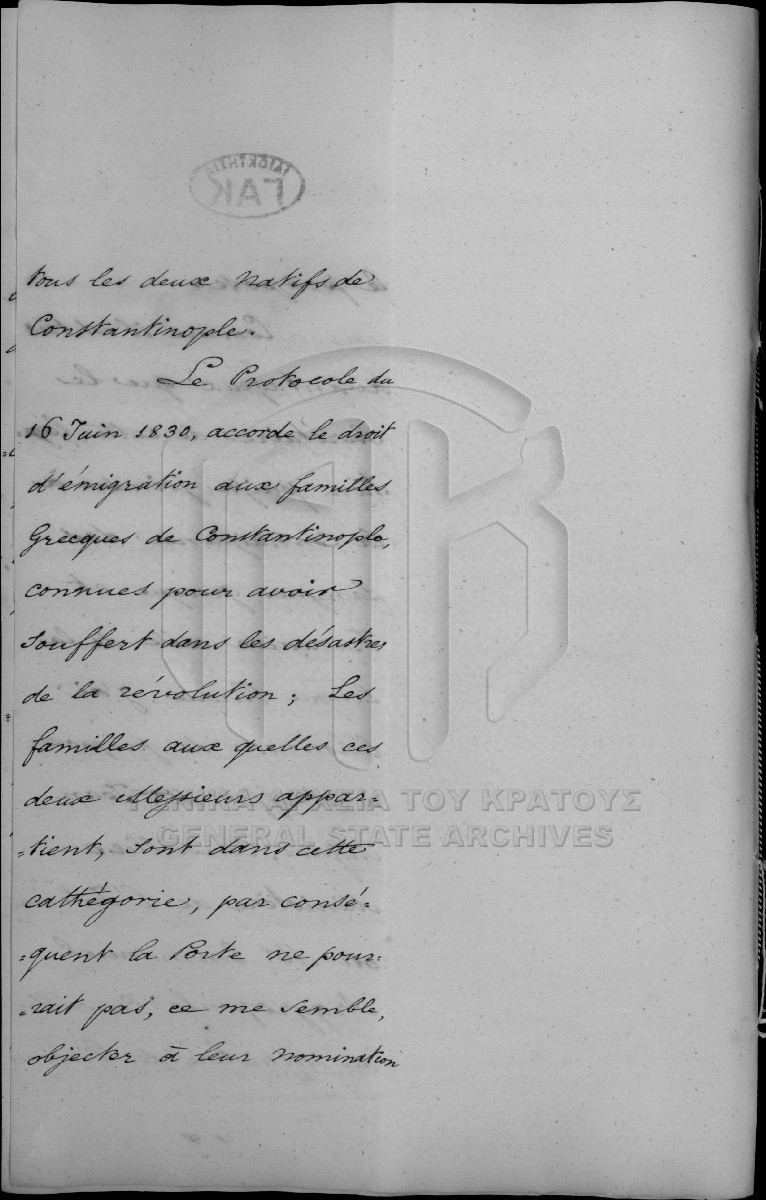 tous les deux natifs de
Constantinople.
Le Protocole du
16 Juin 1830, accorde le droit
d'émigration aux familles
Grecques de Constantinople,
connues pour avoir
souffert dans les désastres
de la révolution; Les
familles aux quelles ces
deux Messieurs appar=
=tient, sont dans cette
cathégorie, par consé=
=quent la Porte ne pour=
=rait pas, ce me semble,
objecter à leur nomination
ΓΑΚ
ΓΕΝΙΚΑ ΑΡΧΕΙΑ ΤΟΥ ΚΡΑΤΟΥΣ
GENERAL STATE ARCHIVES